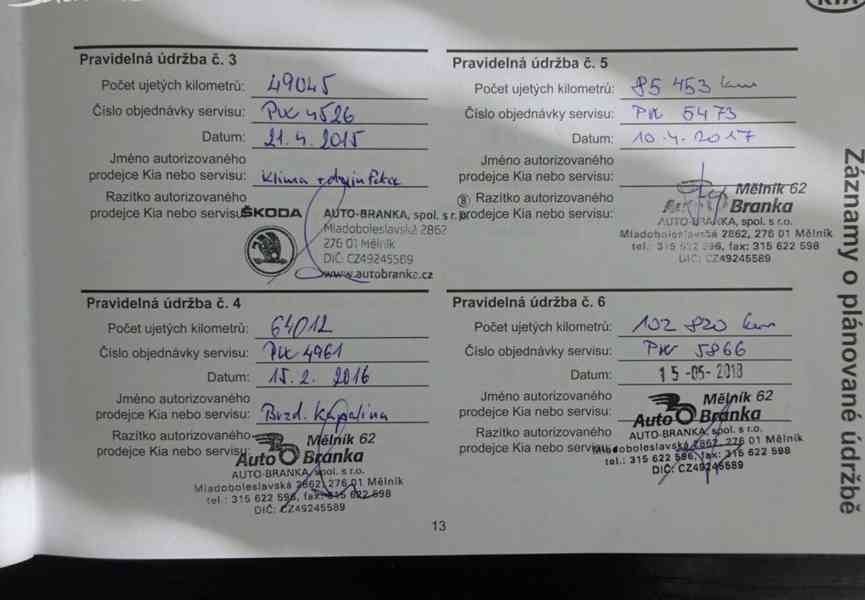 KIA
Záznamy o plánované údržbě
Pravidelná údržba č. 3
Počet ujetých kilometrů: 49045
Číslo objednávky servisu: PVK 4526
Datum: 21.4. 2015
Jméno autorizovaného
prodejce Kia nebo servisu: Klima
Razítko autorizovaného
prodejce Kia nebo servisu:
ŠKODA
AUTO-BRANKA, spol. s r.o.
Mladoboleslavská 2862
276 01 Mělník
DIČ: CZ49245589
www.autobranka.cz
Pravidelná údržba č. 4
Počet ujetých kilometrů: 64012
Číslo objednávky servisu: PVK 4961
Datum: 15.2. 2016
Jméno autorizovaného
prodejce Kia nebo servisu: Brzd. Kapalina
Razítko autorizovaného
prodejce Kia nebo servisu:
Mělník 62
Auto Branka
AUTO-BRANKA, spol. s r.o.
Mladoboleslavská 2862, 276 01 Mělník
tel.: 315 622 596, fax: 315 622 598
DIČ: CZ49245589
Pravidelná údržba č. 5
Počet ujetých kilometrů: 85 453 km
Číslo objednávky servisu: PVK 5473
Datum: 10.4.2017
Jméno autorizovaného
prodejce Kia nebo servisu:
® Razítko autorizovaného
prodejce Kia nebo servisu:
Mělník 62
Auto Branka
AUTO-BRANKA, spol. s r.o.
Mladoboleslavská 2862, 276 01 Mělník
tel.: 315 622 596, fax: 315 622 598
DIČ: CZ49245589
Pravidelná údržba č. 6
Počet ujetých kilometrů: 102 820 km
Číslo objednávky servisu: PVK 5866
Datum: 15 -05- 2018
Jméno autorizovaného
prodejce Kia nebo servisu:
Razítko autorizovaného
prodejce Kia nebo servisu:
Mělník 62
Auto Branka
AUTO-BRANKA, spol. s r.o.
Mladoboleslavská 2862, 276 01 Mělník
tel.: 315 622 596, fax: 315 622 598
DIČ: CZ49245589
13